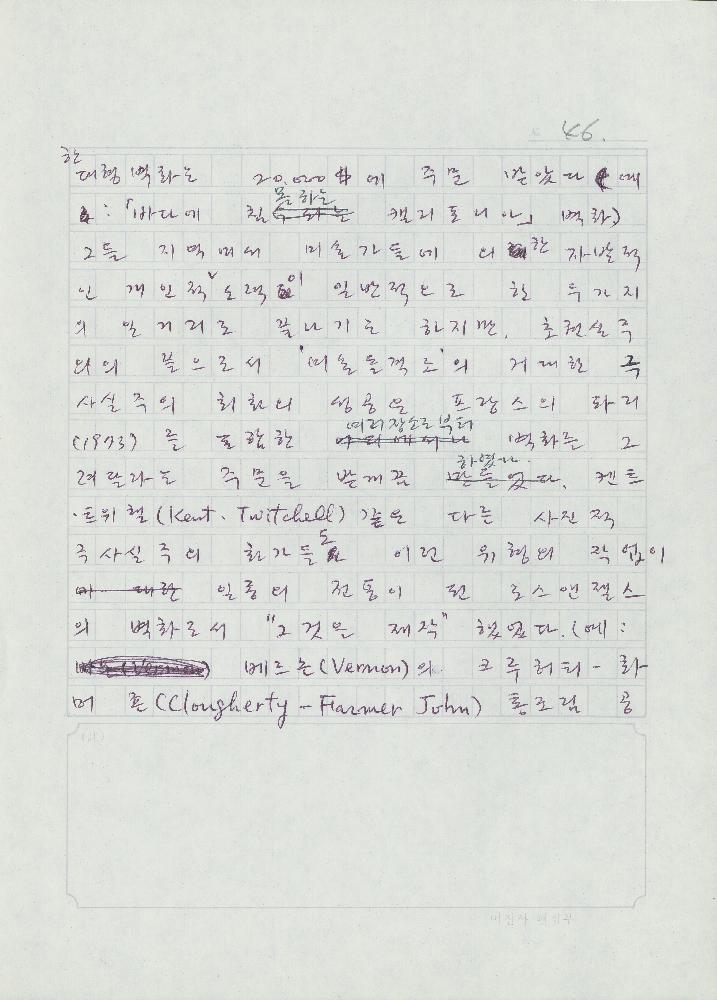 46.
한
대형벽화는 20,000 $에 주문 받았다 (예
: 「바다에 침몰하는 캘리포니아」 벽화)
그들 지역에서 미술가들에 의한 자발적
인 개인적 노력이 일반적으로 한 두가지
의 일거리로 끝나기도 하지만, 초현실주
의의 끝으로서 '미술돌격조'의 거대한 극
사실주의 회화의 성공은 프랑스의 파리
(1973)를 포함한 여러장소로부터 벽화를 그
려달라는 주문을 받게끔 하였다. 켄트
·트위첼(Kent. Twitchell) 같은 다른 사진적
극사실주의 화가들도 이런 위험의 작업이
일종의 전통이 된 로스앤젤스
의 벽화로서 "그것을 제작" 했었다. (예:
베르논(Vernon)의 크루허티-화
머 죤(Clougherty-Farmer John) 통조림 공